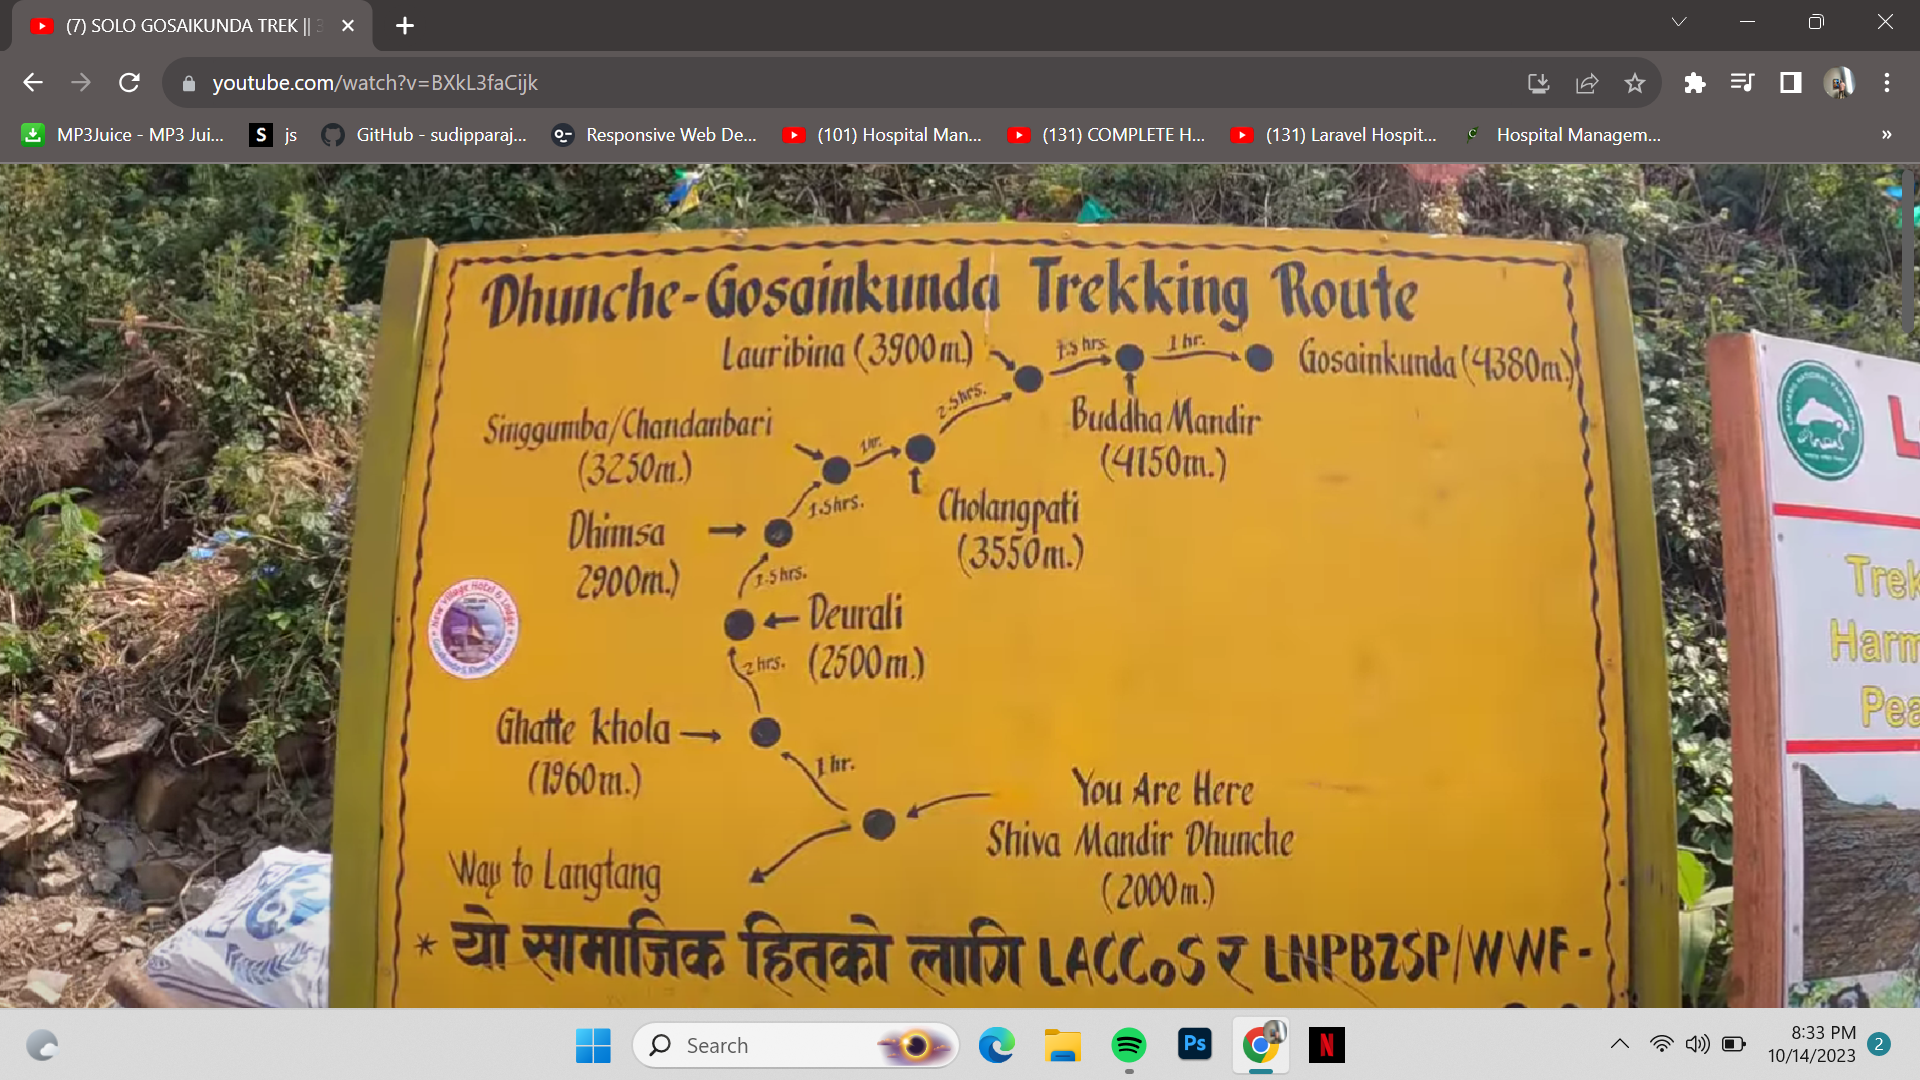 (7) SOLO GOSAIKUNDA TREK || 3
youtube.com/watch?v=BXkL3faCijk
MP3Juice - MP3 Jui...
js
GitHub - sudipparaj...
Responsive Web De...
(101) Hospital Man...
(131) COMPLETE H...
(131) Laravel Hospit...
Hospital Managem...
»
Dhunche-Gosainkunda Trekking Route
Lauribina (3900m.)
1.5 hrs.
1 hr.
Gosainkunda (4380m.)
2.5hrs.
Buddha Mandir
(4150m.)
Singgumba/Chandanbari
(3250m.)
1hr.
Cholangpati
(3550m.)
1.5hrs.
Dhimsa
2900m.)
1.5hrs.
Deurali
(2500m.)
New Village Hotel & Lodge
2 hrs.
Ghatte khola
(1960m.)
1 hr.
You Are Here
Shiva Mandir Dhunche
(2000m.)
Way to Langtang
* यो सामाजिक हितको लागि LACCoS र LNPBZSP/WWF-
L
Trek
Harm
Pea
Search
Ps
N
8:33 PM
10/14/2023
2